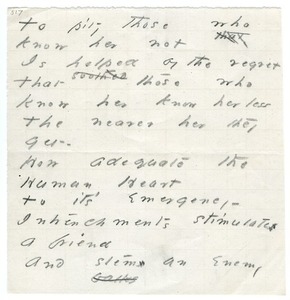 517
To pity those who
know her not
Is helped by the regret
soothed
That those who
know her know her less
The nearer her they
get -
How adequate the
Human Heart
To its Emergency -
Intrenchments stimulate
a friend
And stem an Enemy
balks